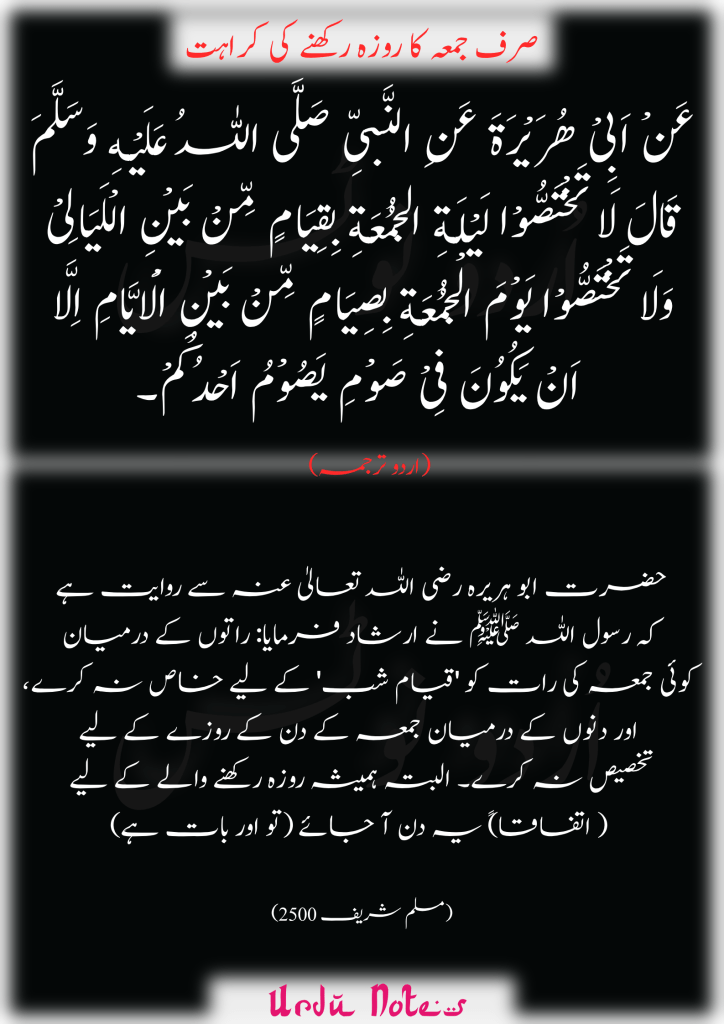 صرف جمعہ کا روزہ رکھنے کی کراہت
عَنْ اَبِیْ ھُرَیْرَۃَ عَنِ النَّبِیِّ صَلَّی اللہُ عَلَیْہِ وَسَلَّمَ
قَالَ لَا تَخْتَصُّوْا لَیْلَۃِ الجُمُعَۃِ بِقِیَامٍ مِّنْ بَیْنِ اللَّیَالِیْ
وَلَا تَخْتَصُّوْا یَوْمَ الْجُمُعَۃِ بِصِیَامٍ مِّنْ بَیْنِ الْاَیَّامِ اِلَّا
اَنْ یَکُوْنَ فِیْ صَوْمِ یَصُوْمُ اَحْدُکُمْ۔
(اردو ترجمہ)
حضرت ابو ہریرہ رضی اللہ تعالیٰ عنہ سے روایت ہے
کہ رسول اللہ ﷺ نے ارشاد فرمایا: راتوں کے درمیان
کوئی جمعہ کی رات کو 'قیام شب' کے لیے خاص نہ کرے،
اور دنوں کے درمیان جمعہ کے دن کے روزے کے لیے
تخصیص نہ کرے۔ البتہ ہمیشہ روزہ رکھنے والے کے لیے
( اتفاقاً) یہ دن آ جائے (تو اور بات ہے)
(مسلم شریف 2500)
Urdu Notes